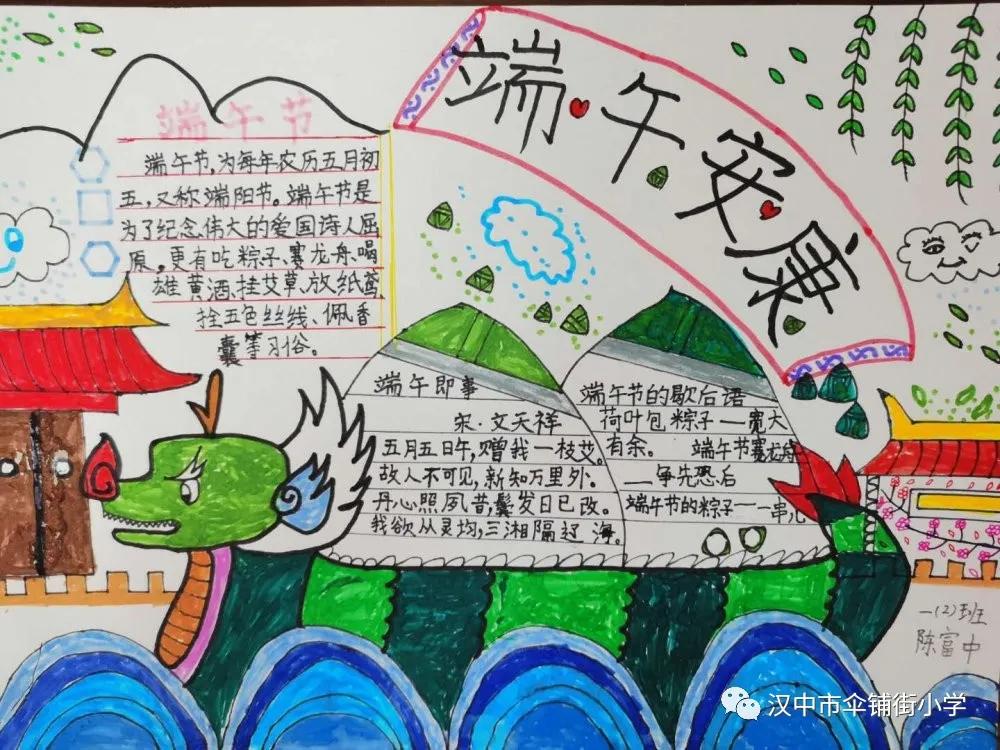 端午安康
端午节
端午节,为每年农历五月初
五,又称端阳节。端午节是
为了纪念伟大的爱国诗人屈
原。更有吃粽子、赛龙舟、喝
雄黄酒、挂艾草、放纸鸢、
拴五色丝线、佩香
囊等习俗。
端午即事
宋·文天祥
五月五日午,赠我一枝艾。
故人不可见,新知万里外。
丹心照夙昔,鬓发日已改。
我欲从灵均,三湘隔辽海。
端午节的歇后语
荷叶包粽子——宽大
有余。 端午节赛龙舟
——争先恐后
端午节的粽子——一串儿
一(2)班
陈富中
汉中市伞铺街小学